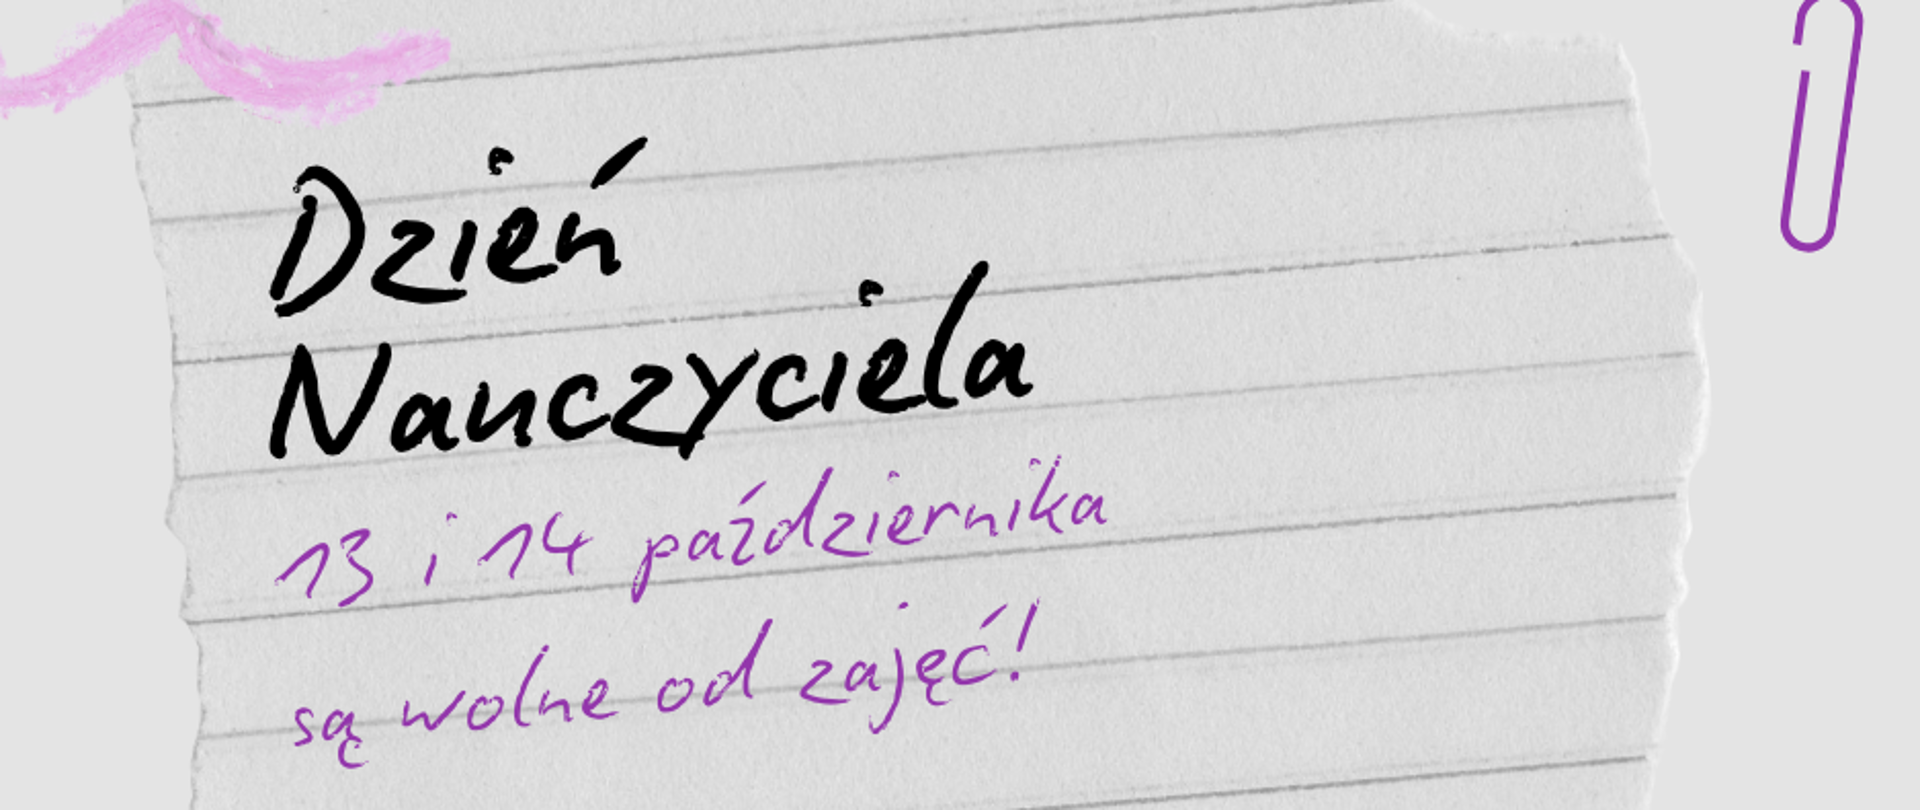 Dzień
Nauczyciela
13 i 14 października
są wolne od zajęć!